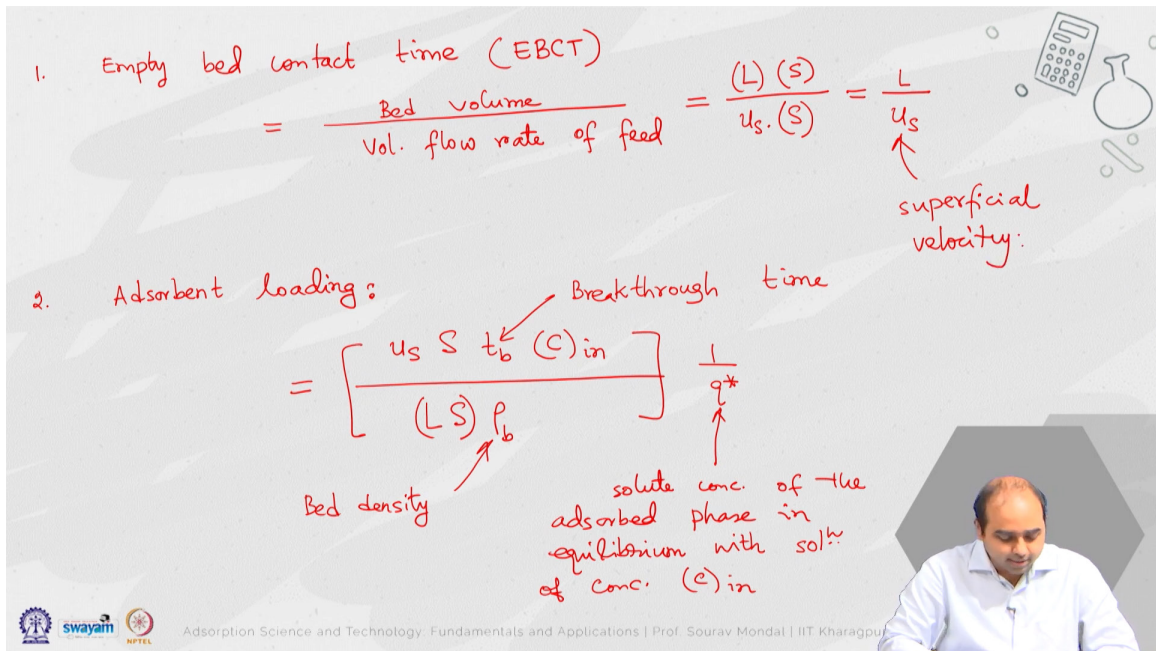 1. Empty bed contact time (EBCT)
= Bed volume / Vol. flow rate of feed = (L) (S) / us. (S) = L / us
superficial
velocity.
2. Adsorbent loading:
Breakthrough time
= [ us S tb (C)in / (LS) ρb ] 1 / q*
Bed density
solute conc. of the
adsorbed phase in
equilibrium with solⁿ
of conc. (C)in
swayam
NPTEL
Adsorption Science and Technology: Fundamentals and Applications | Prof. Sourav Mondal | IIT Kharagpur